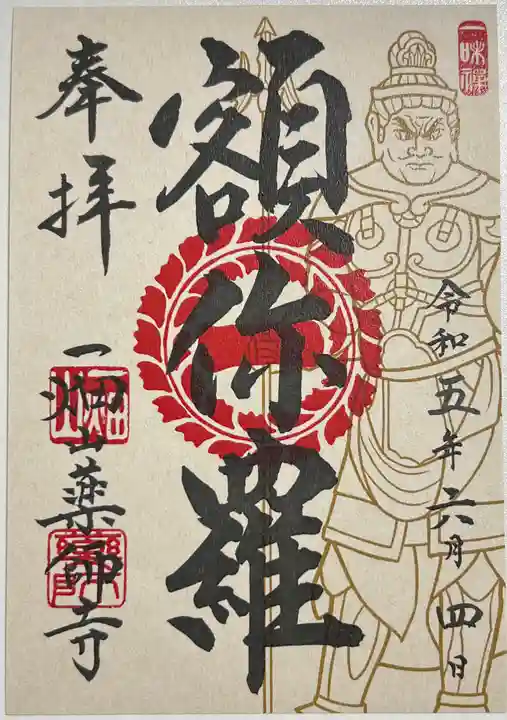 一味禪
令和五年六月四日
額你羅
奉拝
一畑山薬師寺